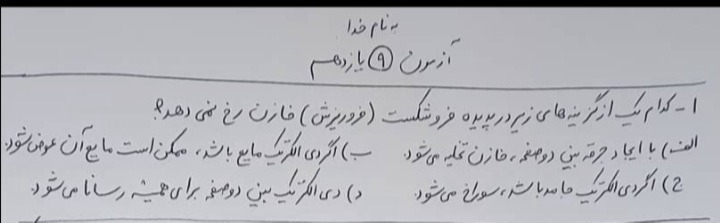 به نام خدا
آزمون ۹ یازدهم
۱- کدام یک از گزینه های زیر در پدیده فروشکست (فروریزش) خازن رخ نمی دهد؟
الف) با ایجاد جرقه بین دوصفحه، خازن تخلیه می شود ب) اگر دی الکتریک مایع باشد، ممکن است مایع آن عوض شود.
ج) اگر دی الکتریک جامد باشد، سوراخ می شود د) دی الکتریک بین دوصفحه برای همیشه رسانا می شود